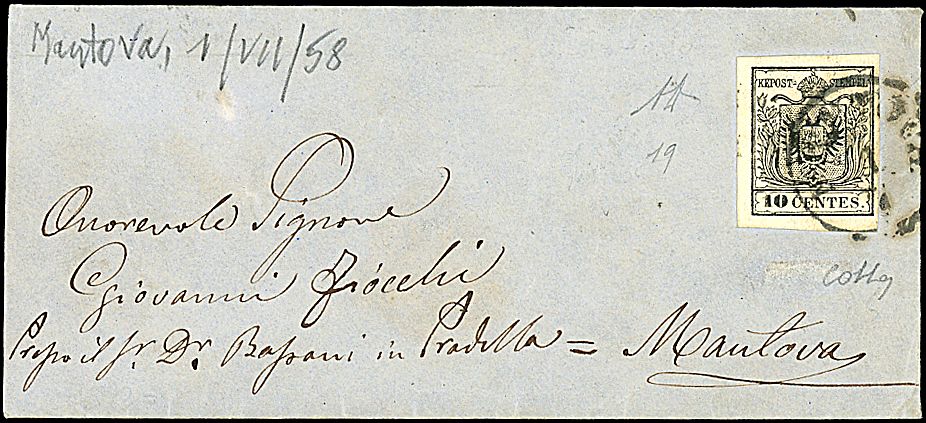 Mantova, 1/VII/58
19
KEPOST-STEMPEL
10 CENTES.
Onorevole Signore
Giovanni Fiocchi
Presso il Sr. Dr. Bassani in Pradella = Mantova